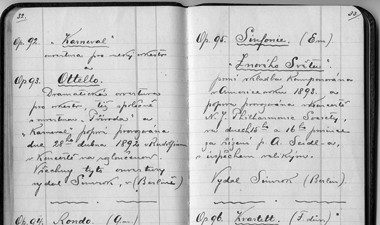 32.
Op. 92. „Karneval"
ouvertura pro velký orkestr
a
Op 93. Ottello.
Dramatická ouvertura
pro orkestr, tyž společně
s ouverturou „Příroda" a
„Karneval" poprvé provozována
dne 28ho dubna 1892 v Rudolfinum
v koncertě na rozloučenou.
Všechny tyto ouvertury
vydal Simrok, v (Berlíně)
Op. 94. Rondo. (G m)
Op. 95. Sinfonie. (E m)
„Z nového Světa"
první skladba komponována
v Americe roku 1893. a
poprvé provozována v koncertě
N. Y. Philharmonic Society,
ve dnech 15ho a 16ho prosince
za řízení p. A. Seidl-a.
s úspěchem velikým.
Vydal Simrok (Berlin).
Op. 96. Kvartett. (F dur)